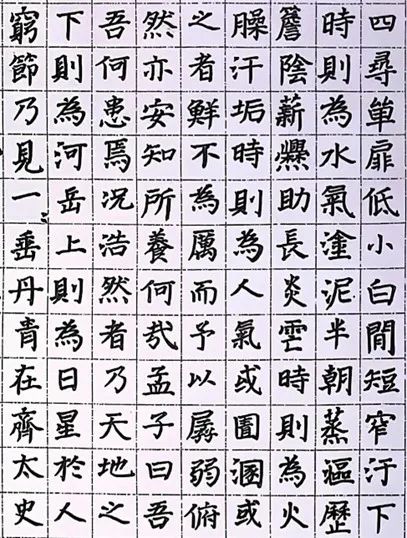 四尋單扉低小白間短窄汙下
時則為水氣塗泥半朝蒸漚歷
簷陰薪爨助長炎時則為火
臊汗垢時則為人氣或圊溷或
之者鮮不為厲而予以孱弱俯
然亦安知所養何哉孟子曰吾
吾何患焉況浩然者乃天地之
下則為河岳上則為日星於人
窮節乃見一〻垂丹青在齊太史